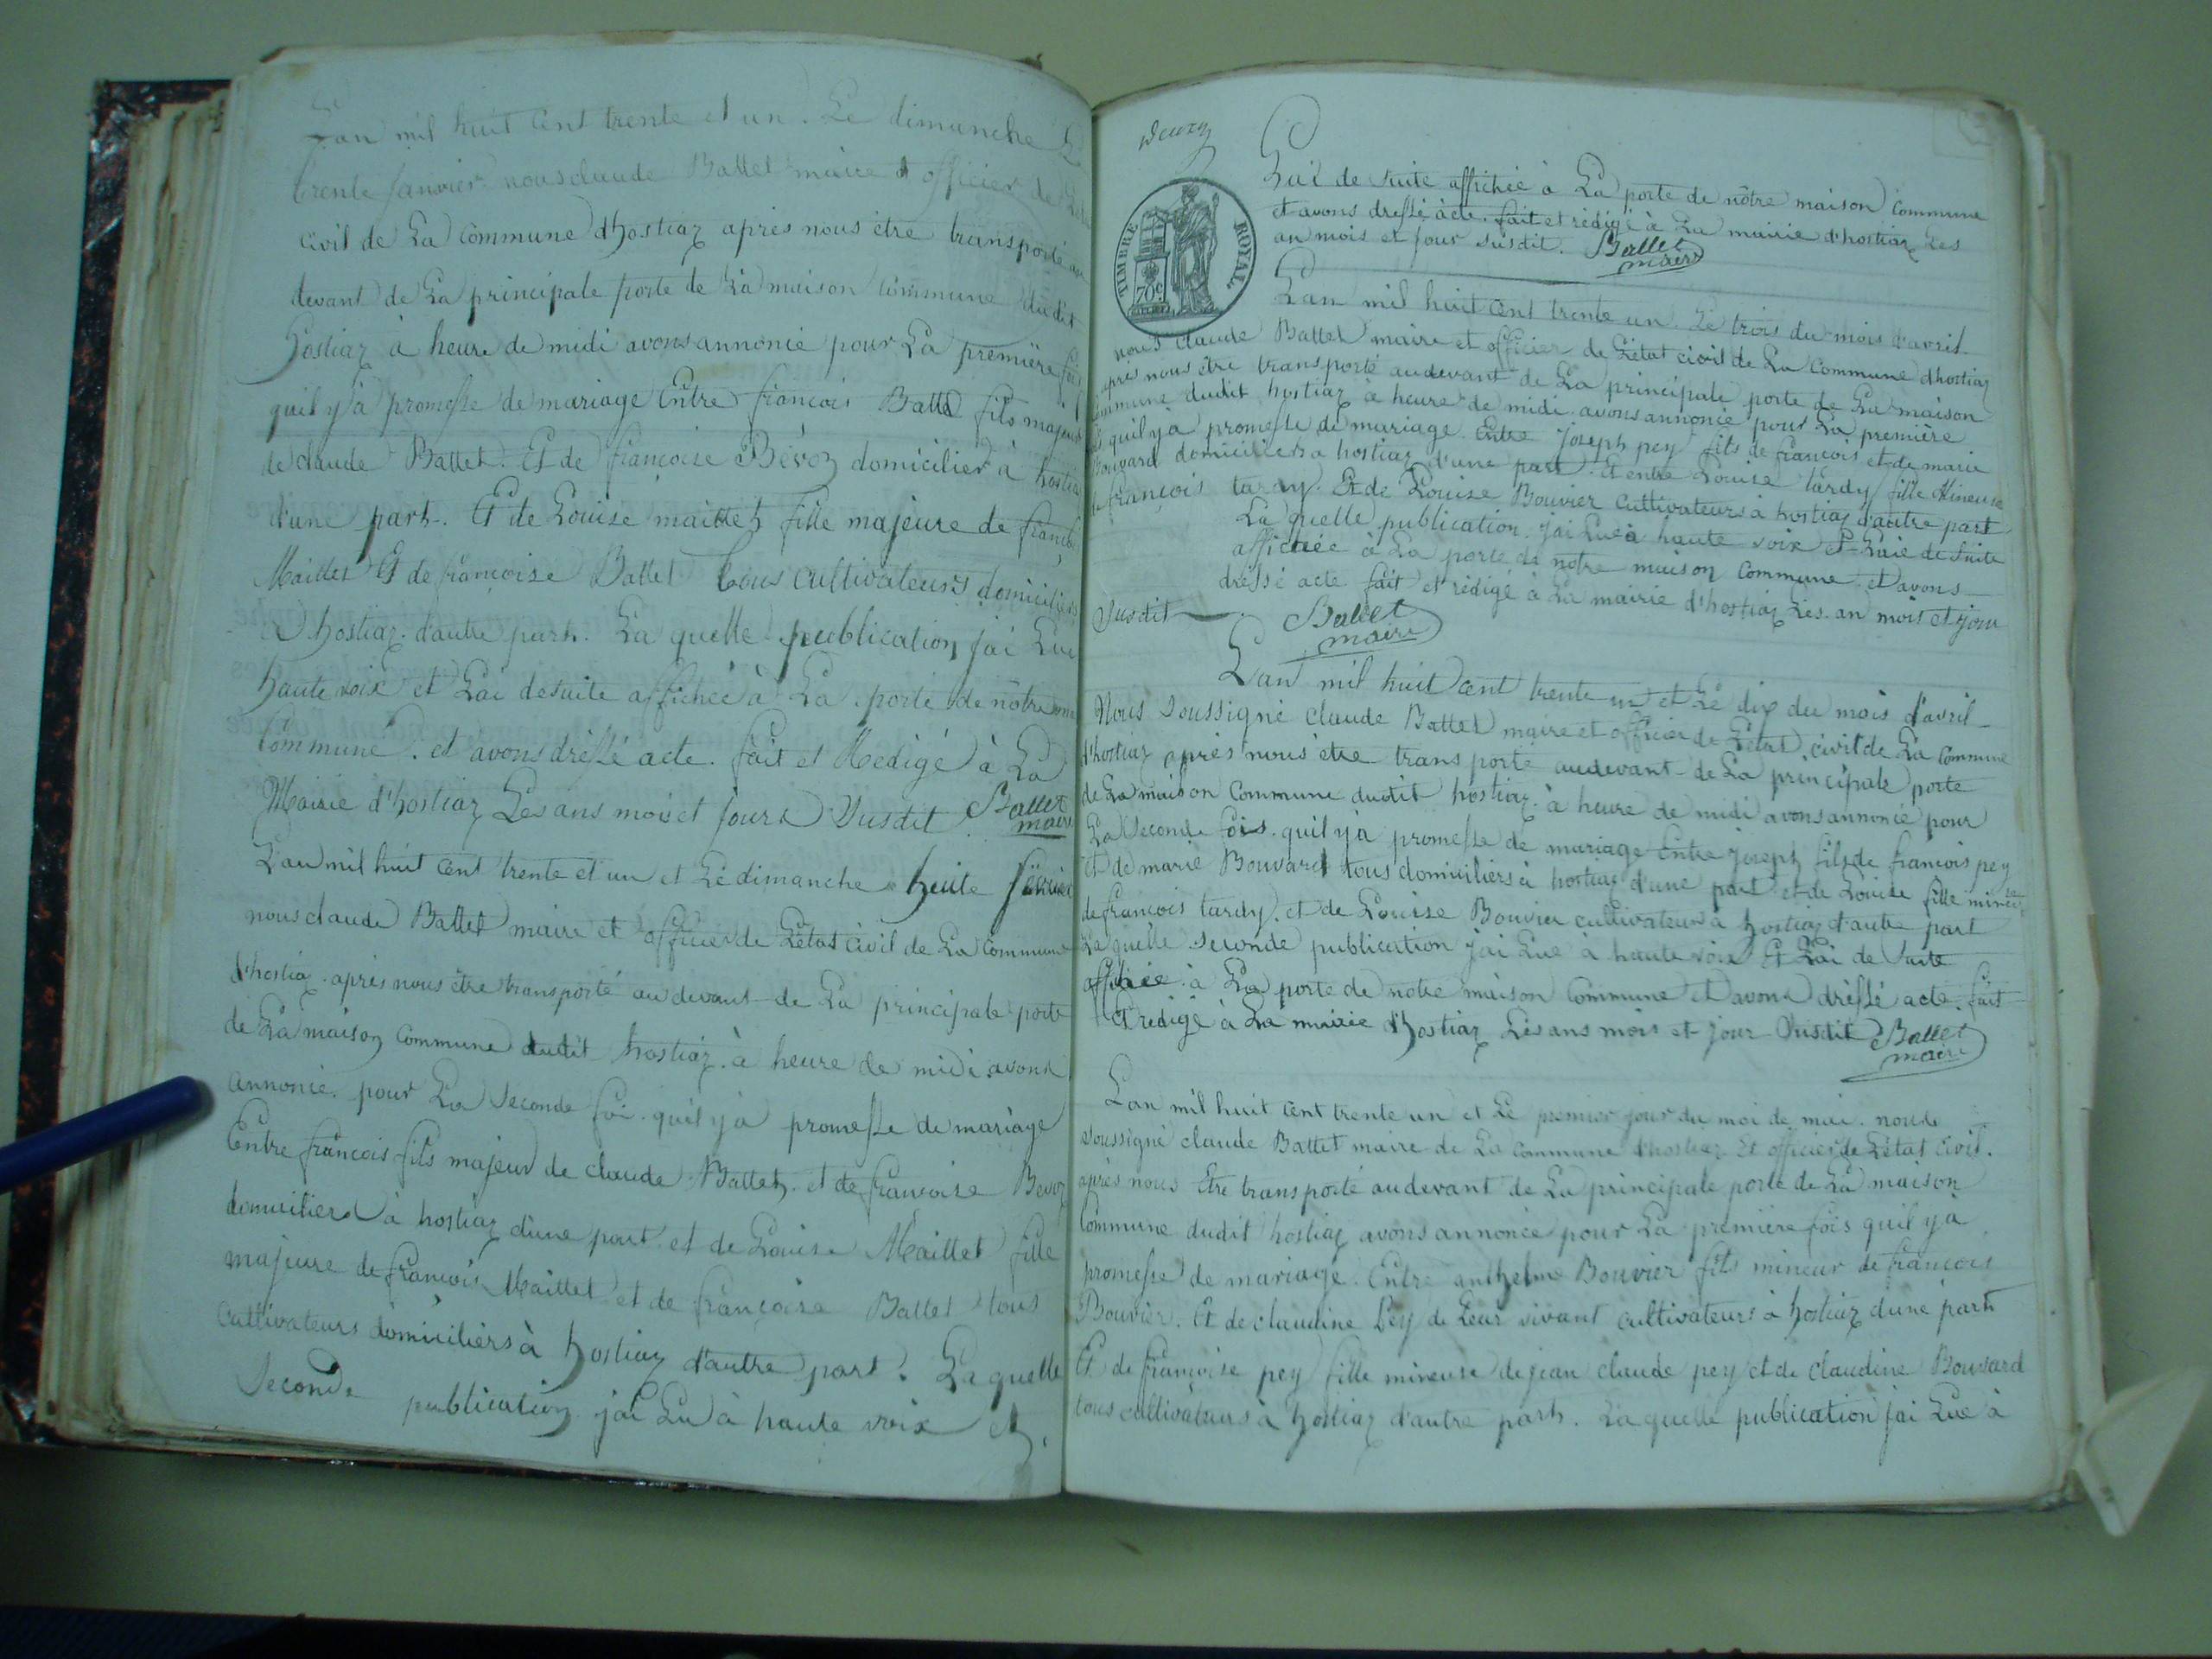 Lan mil huit cent trente et un. Le dimanche
trente janvier nous claude Ballet maire et officier de
civil de La Commune dhostiaz après nous être transporté au
devant de La principale porte de La maison commune dudit
hostiaz à heure de midi avons annoncé pour La première fois
quil y à promesse de mariage Entre francois Ballet fils majeur
de claude Ballet. Et de francoise Bévoz domicilier à hostiaz
d'une part. Et de Louise maillet fille majeure de
Maillet Et de françoise Ballet tous cultivateurs domiciliers
à hostiaz. d'autre part. La quelle publication jai Lue
haute voix et Lai desuite affichée à La porte de nôtre
Commune. et avons dréssé acte. fait et Redigé à La
Mairie d'hostiaz Les ans mois et jours Susdit Ballet
maire
L'an mil huit cent trente et un et Le dimanche
nous claude Ballet maire et officier de L'état civil de La Commune
d'hostia. après nous être transporté au devant de La principale porte
de La maison Commune dudit hostiaz. à heure de midi avons
annoncé. pour La seconde foi. quil y à promesse de mariage
Entre francois fils majeur de claude Ballet. et de francoise Bevoz
domiciliers à hostiaz d'une part et de Louise Maillet fille
majeure de francois Maillet et de françoise Ballet tous
Cultivateurs domiciliers à hostiaz d'autre part. La quelle
Seconde publication jai Lu à haute voix et
Lai de suite affichée à La porte de nôtre maison Commune
et avons dressé àcte. fait et rédigé à La mairie d'hostiaz Les
an mois et jour susdit. Ballet
maire
TIMBRE ROYAL
70c
Lan mil huit cent trente un. Le trois du mois d'avril.
nous claude Ballet maire et officier de L'état civil de La Commune d'hostiaz
après nous être transporté audevant de La principale porte de La maison
commune dudit hostiaz à heure de midi avons annoncé pour La première
fois quil y à promesse de mariage. Entre joseph pey fils de francois et de marie
Bouvard domiciliers à hostiaz d'une part. Et entre Louise tardy fille Mineure
de françois tardy. Et de Louise Bouvier Cultivateurs à hostiaz d'autre part
La quelle publication. jai Lue à haute voix et Laie de Suite
affichée à La porte de notre maison Commune. et avons
dréssé acte fait et rédigé à La mairie d'hostiaz Les an mois et jour
Susdit. Ballet
maire
Lan mil huit cent trente un et Le dix du mois d'avril
Nous Soussigné claude Ballet maire et officier de L'état civil de La Commune
d'hostiaz après nous être transporté audevant de La principale porte
de La maison Commune dudit hostiaz. à heure de midi avons annoncé pour
La Seconde fois. quil y à promesse de mariage Entre joseph fils de francois pey
et de marie Bouvard tous domiciliers à hostiaz d'une part et de Louise fille mineure
de francois tardy. et de Louise Bouvier cultivateurs à hostiaz d'autre part
La quelle seconde publication jai Lue à haute voix Et Lai de suite
affichée à La porte de notre maison Commune et avons dréssé acte. fait
et rédigé à La mairie d'hostiaz Les ans mois et jour Susdit Ballet
maire
Lan mil huit cent trente un et Le premier jour du moi de mai. nous
soussigné claude Ballet maire de La commune d'hostiaz Et officier de L'état civil.
après nous Etre transporté audevant de La principale porte de La maison
Commune dudit hostiaz avons annoncé pour La première fois quil y à
promesse de mariage. Entre anthelme Bouvier fils mineur de francois
Bouvier. Et de claudine Pey de Leur vivant cultivateurs à hostiaz dune part
Et de françoise pey fille mineure de jean claude pey et de claudine Bouvard
tous cultivateurs à hostiaz d'autre part. La quelle publication jai Lue à